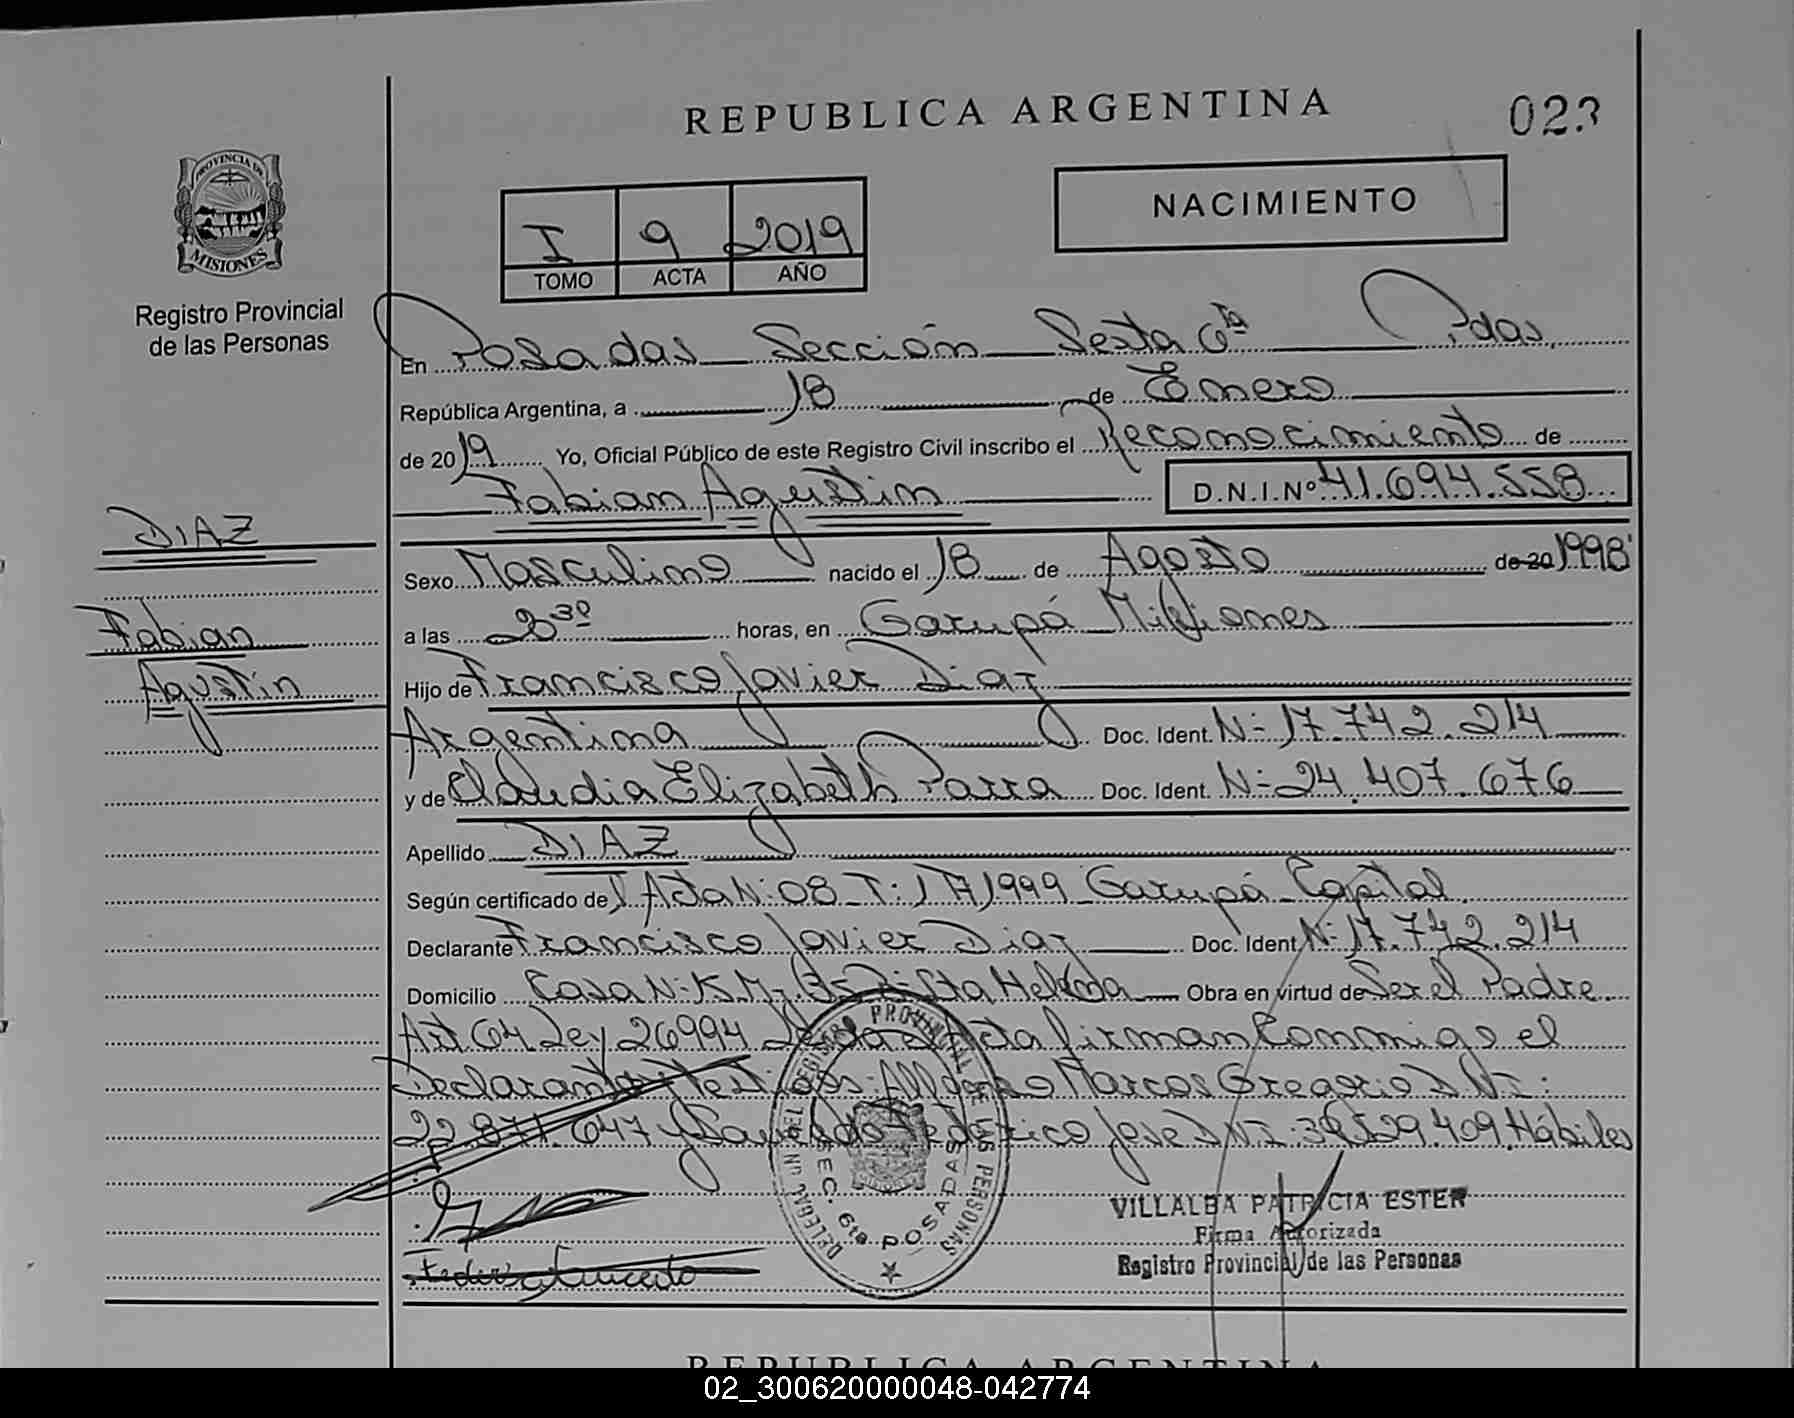 REPUBLICA ARGENTINA
023
PROVINCIA DE
MISIONES
Registro Provincial
de las Personas
NACIMIENTO
I 9 2019
TOMO ACTA AÑO
En Posadas Sección Sexta 6ta Pdas,
República Argentina, a 18 de Enero
de 2019 Yo, Oficial Público de este Registro Civil inscribo el Reconocimiento de
Fabian Agustin D.N.I.Nº 41.694.558
DIAZ
Fabian
Agustin
Sexo Masculino nacido el 18 de Agosto de 20 1998
a las 2 30 horas, en Garupá Misiones
Hijo de Francisco Javier Diaz
Argentina Doc. Ident. N- 17.742.214
y de Claudia Elizabeth Parra Doc. Ident. N- 24.407.676
Apellido DIAZ
Según certificado de Acta N: 08 T: 1 A/1999 Garupá Capital
Declarante Francisco Javier Diaz Doc. Ident N- 17.742.214
Domicilio Casa N: Sta Helena Obra en virtud de Ser el Padre
Art 64 Ley 26994 Leida el Acta firman Conmigo el
Declarante y Testigos: Marcos Gregorio DNI:
22.871.647 y Federico Jose DNI 39.529.409 Hábiles
REGISTRO PROVINCIAL DE LAS PERSONAS
SEC. 6ta POSADAS
VILLALBA PATRICIA ESTER
Firma Autorizada
Registro Provincial de las Personas
REPUBLICA ARGENTINA
02_300620000048-042774